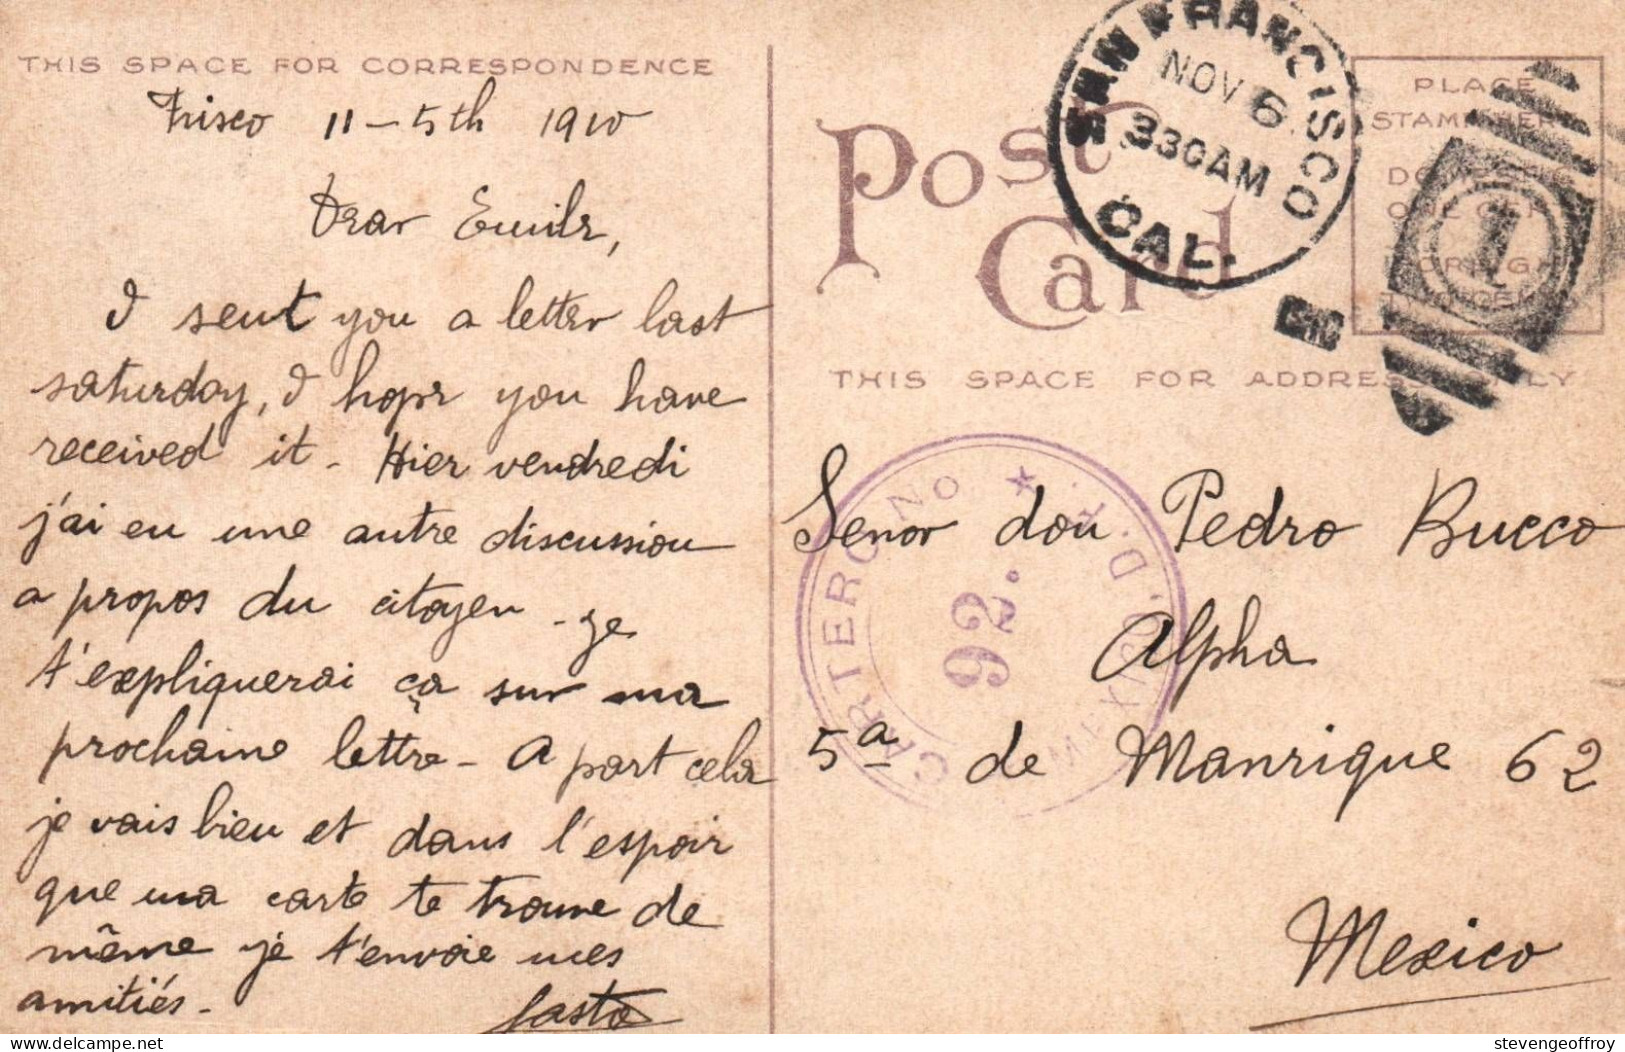 THIS SPACE FOR CORRESPONDENCE
Frisco 11-5th 1910
Dear Emile,
I sent you a letter last
saturday, I hope you have
received it - Hier vendredi
j'ai eu une autre discussion
a propos du citoyen - je
t'expliquerai ça sur ma
prochaine lettre - A part cela
je vais bien et dans l'espoir
que ma carte te trouve de
même je t'envoie mes
amitiés -
Gaston
POST CARD
SAN FRANCISCO
NOV 6
330AM
CAL.
1
PLACE
STAMP HERE
DOMESTIC
ONE CENT
FOREIGN
TWO CENTS
THIS SPACE FOR ADDRESS ONLY
CARTERO NO
92.
MEXICO. D. F.
Senor don Pedro Bucco
Alpha
5a de Manrique 62
Mexico
delcampe.net
stevengeoffroy